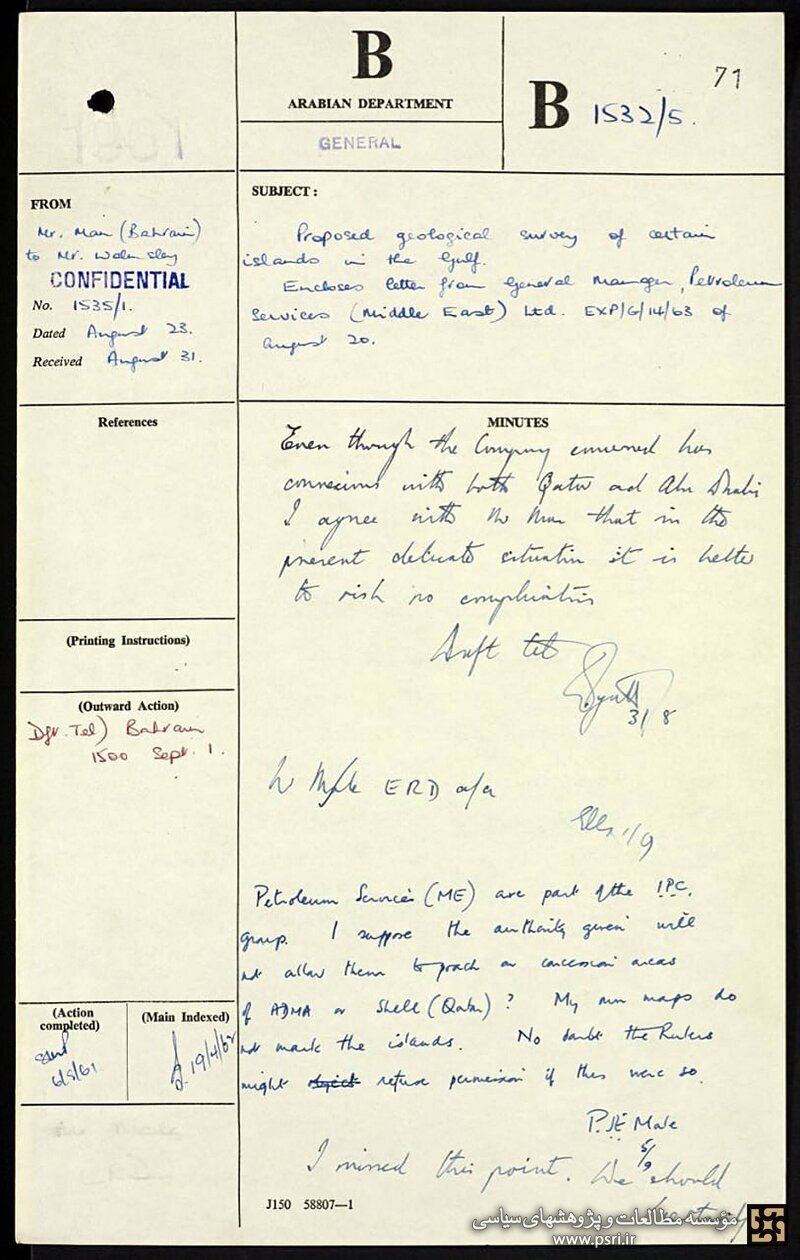 71
B
ARABIAN DEPARTMENT
GENERAL
B 1532/5.
FROM
Mr. Man (Bahrain)
to Mr. Walmsley
CONFIDENTIAL
No. 1535/1.
Dated August 23.
Received August 31.
SUBJECT:
Proposed geological survey of certain
islands in the Gulf.
Encloses letter from General Manager, Petroleum
Services (Middle East) Ltd. EXP/G/14/63 of
August 20.
References
(Printing Instructions)
(Outward Action)
Dft. Tel) Bahrain
1500 Sept. 1.
(Action completed)
6/9/61
(Main Indexed)
19/4/62
MINUTES
Even though the Company concerned has
connexions with both Qatar and Abu Dhabi
I agree with Mr Man that in the
present delicate situation it is better
to risk no complications
Draft tel
31/8
Mr Male ERD o/a
1/9
Petroleum Services (ME) are part of the IPC.
group. I suppose the authority given will
not allow them to poach on concession areas
of ADMA or Shell (Qatar)? My own maps do
not mark the islands. No doubt the Rulers
might object refuse permission if this were so.
P.J.E. Male
5/9
I missed this point. We should
J150 58807—1
مؤسسه مطالعات و پژوهشهای سیاسی
www.psri.ir